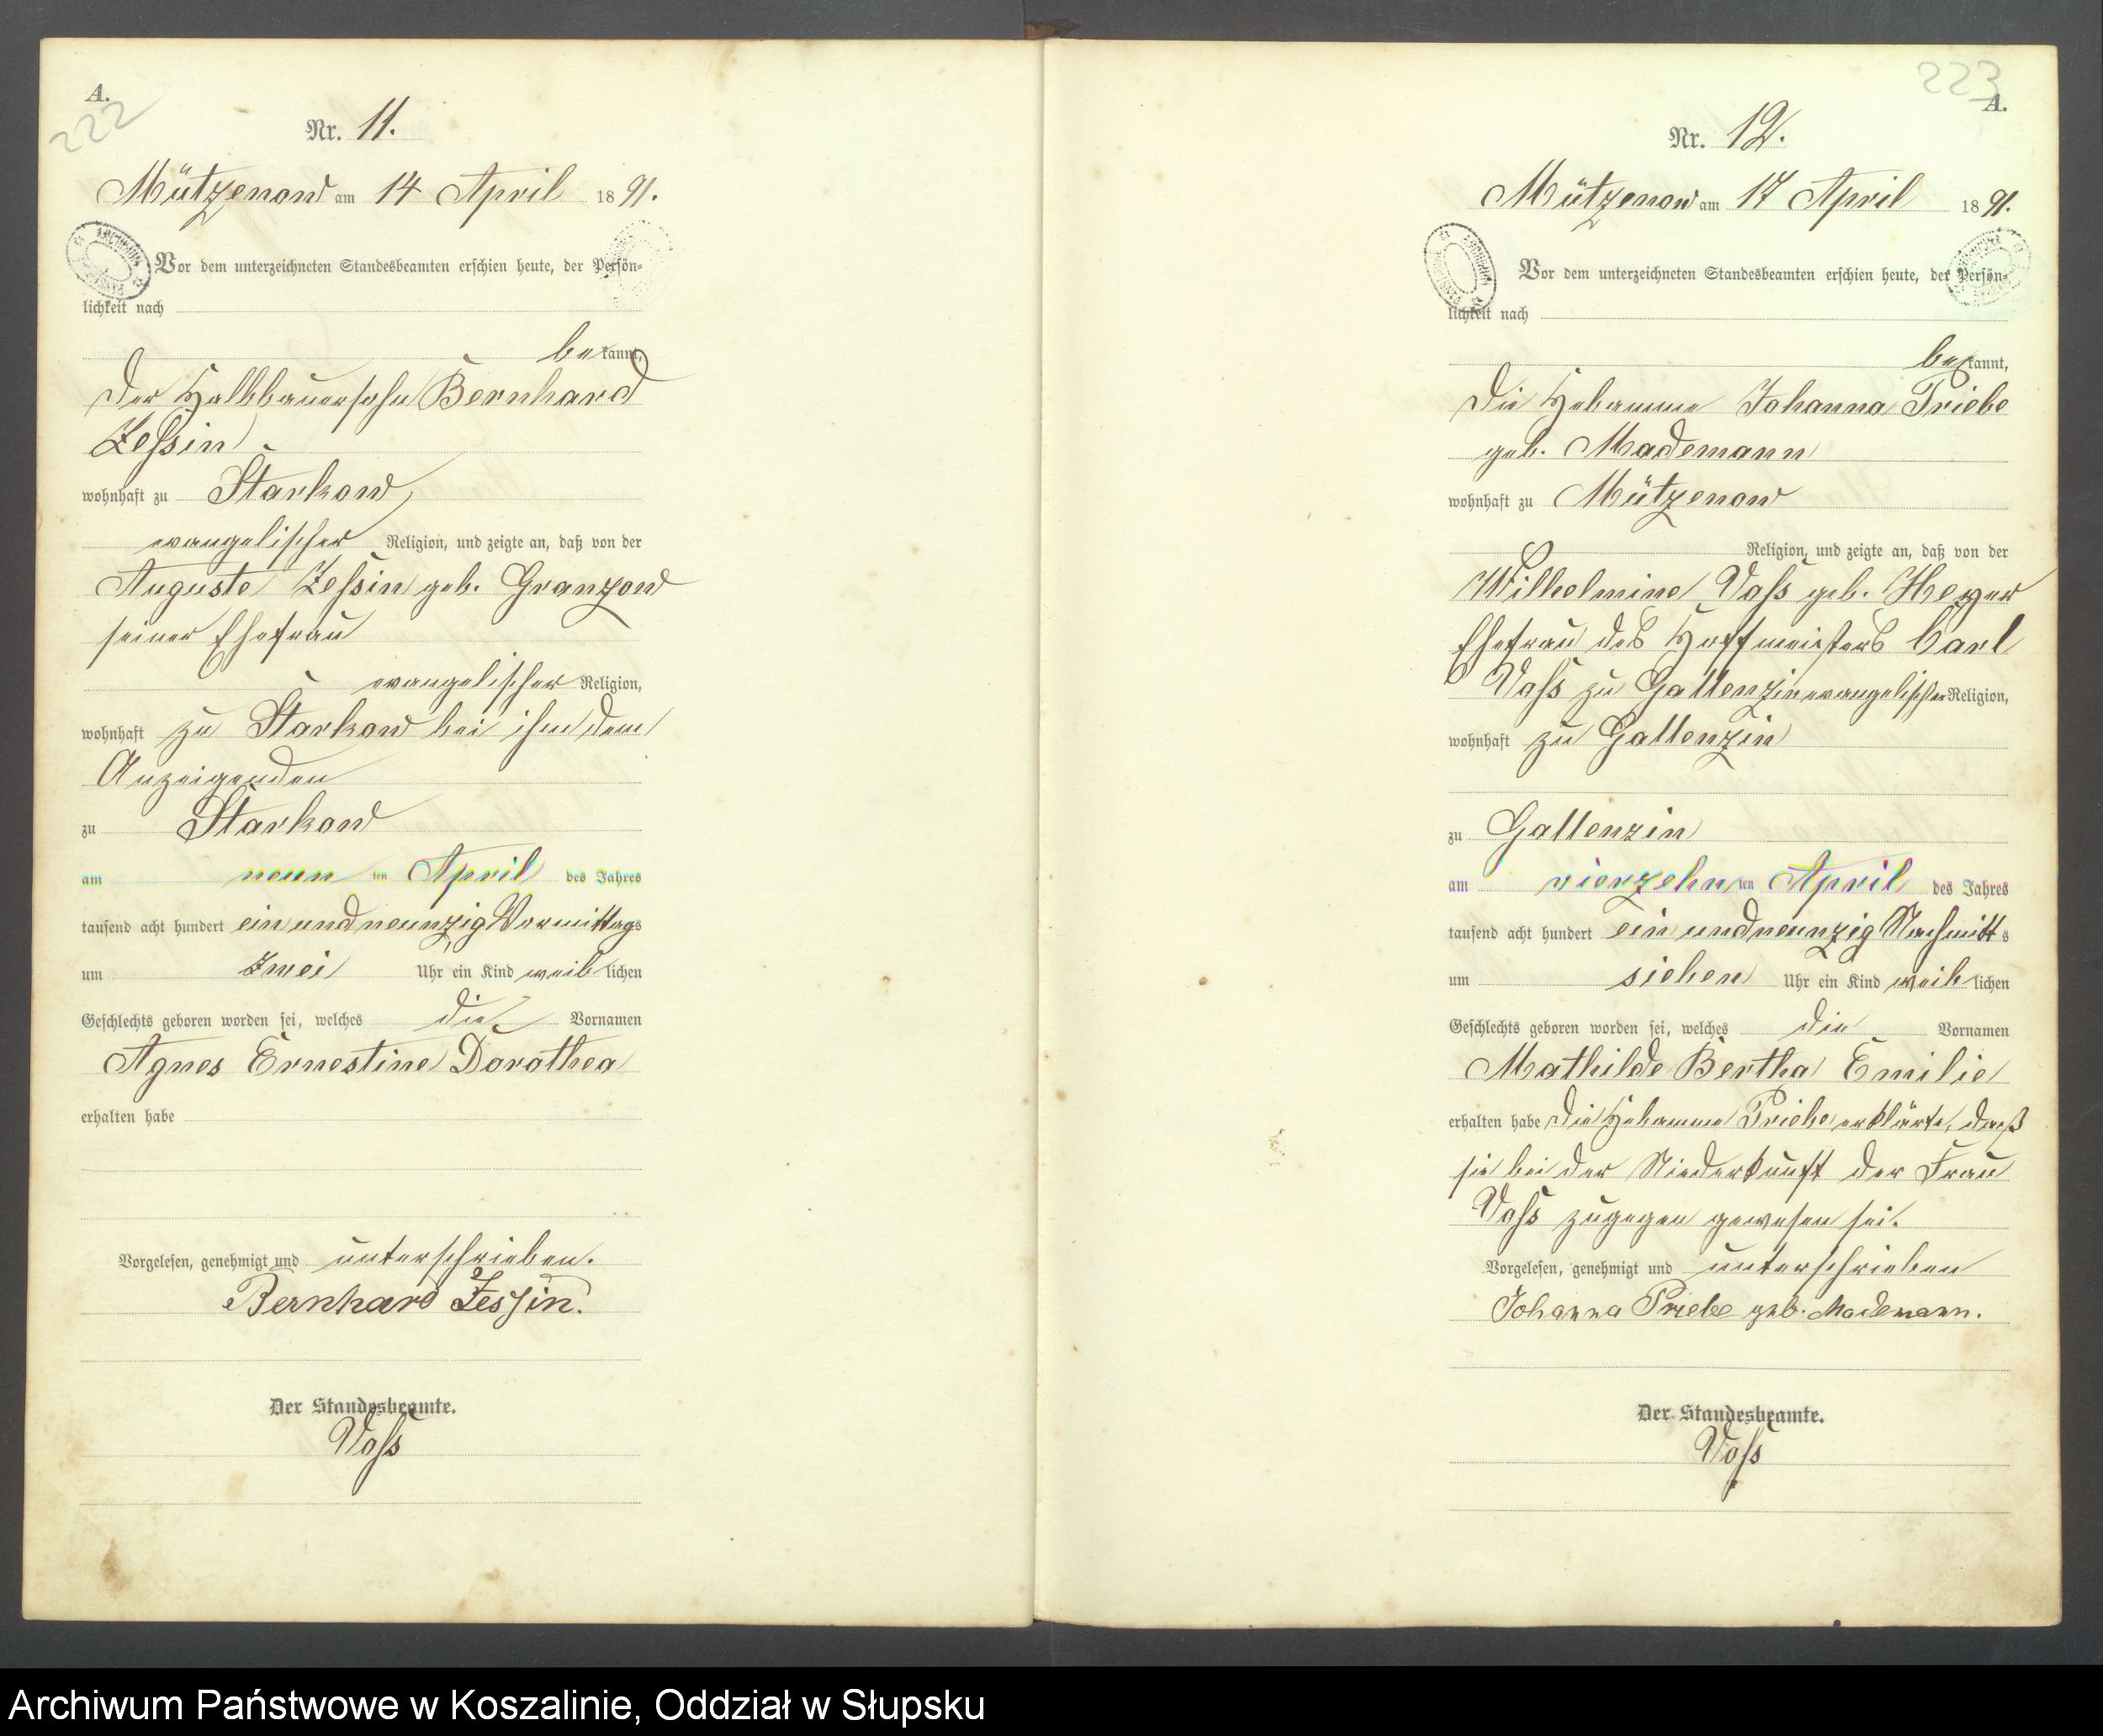 A.
222
Nr. 11.
Mützenow am 14 April 1891.
Vor dem unterzeichneten Standesbeamten erschien heute, der Persön-
lichkeit nach
bekannt,
der Halbbauersohn Bernhard
Zessin
wohnhaft zu Starkow
evangelischer Religion, und zeigte an, daß von der
Auguste Zessin geb. Granzow
seiner Ehefrau
evangelischer Religion,
wohnhaft zu Starkow bei ihm dem
Anzeigenden
zu Starkow
am neun ten April des Jahres
tausend acht hundert ein und neunzig Vormittags
um zwei Uhr ein Kind weiblichen
Geschlechts geboren worden sei, welches die Vornamen
Agnes Ernestine Dorothea
erhalten habe
Vorgelesen, genehmigt und unterschrieben.
Bernhard Zessin.
Der Standesbeamte.
Voss
223
A.
Nr. 12.
Mützenow am 17 April 1891.
Vor dem unterzeichneten Standesbeamten erschien heute, der Persön-
lichkeit nach
bekannt,
die Hebamme Johanna Priebe
geb. Mademann
wohnhaft zu Mützenow
Religion, und zeigte an, daß von der
Wilhelmine Voss geb. Heyer
Ehefrau des Hoffmeisters Carl
Voss zu Gallenzin evangelischer Religion,
wohnhaft zu Gallenzin
zu Gallenzin
am vierzehn ten April des Jahres
tausend acht hundert ein und neunzig Nachmitts
um sieben Uhr ein Kind weiblichen
Geschlechts geboren worden sei, welches die Vornamen
Mathilde Bertha Emilie
erhalten habe die Hebamme Priebe erklärte, daß
sie bei der Niederkunft der Frau
Voss zugegen gewesen sei.
Vorgelesen, genehmigt und unterschrieben
Johanna Priebe geb. Mademann.
Der Standesbeamte.
Voss
Archiwum Państwowe w Koszalinie, Oddział w Słupsku